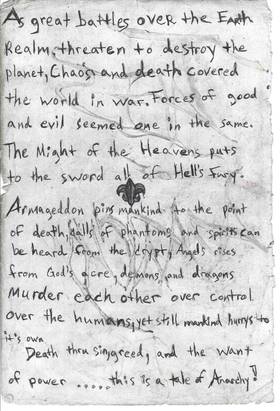 As great battles over the Earth
Realm, threaten to destroy the
planet, Chaos and death covered
the world in war. Forces of good
and evil seemed one in the same.
The Might of the Heavens puts
to the sword all of Hell's Fury.
Armageddon pins mankind to the point
of death, calls of phantoms and spirits can
be heard from the crypt, Angels rises
from God's acre, demons, and dragons
Murder each other over control
over the humans, yet still mankind hurrys to
it's own
Death thru sin, greed, and the want
of power ..... this is a tale of Anarchy!